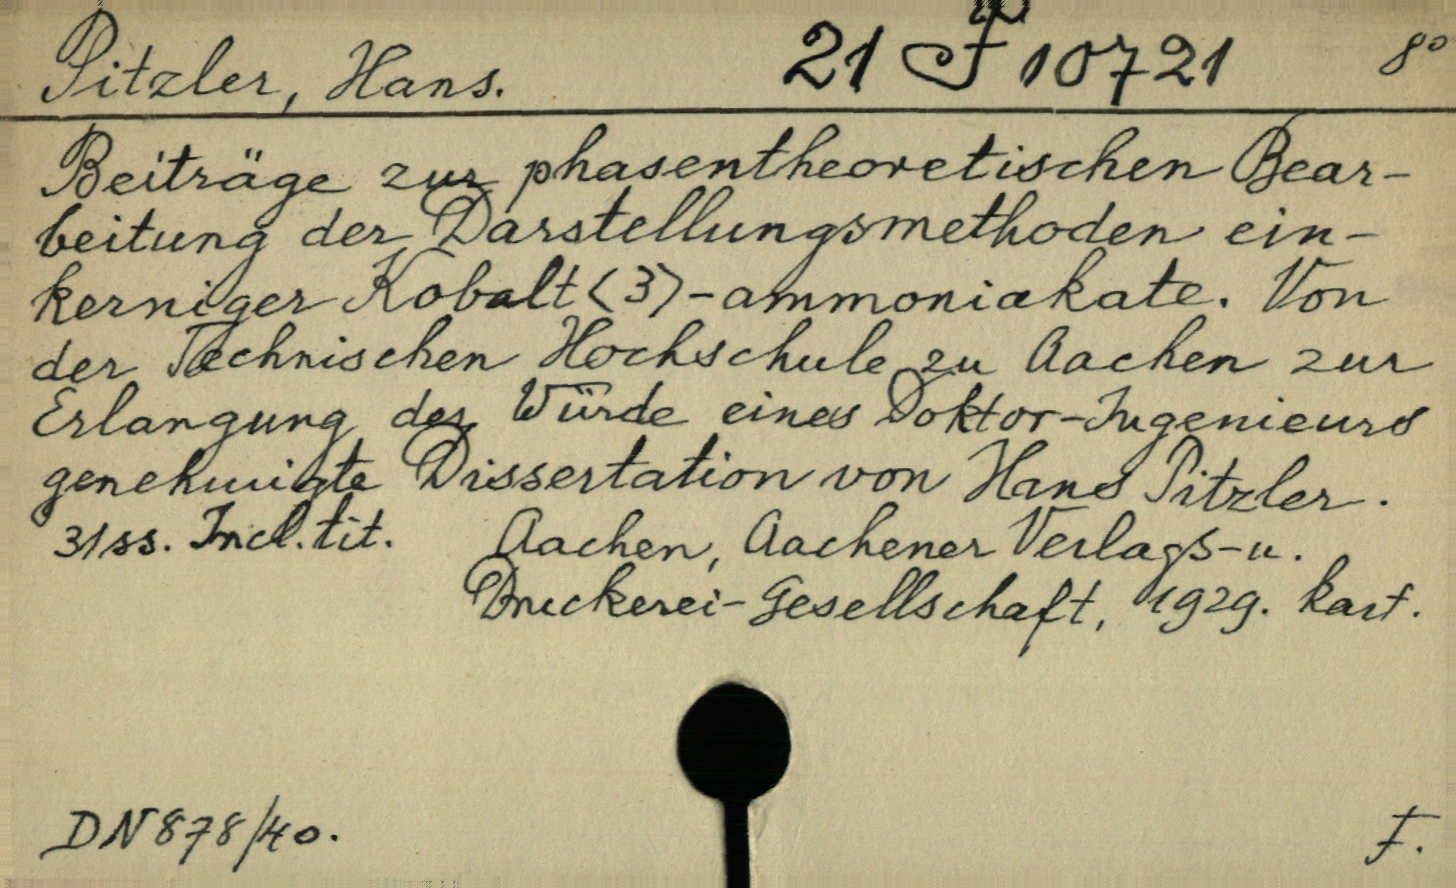 Pitzler, Hans. 21 F 10721 8°
Beiträge zur phasentheoretischen Bear-
beitung der Darstellungsmethoden ein-
kerniger Kobalt<3>-ammoniakate. Von
der Technischen Hochschule zu Aachen zur
Erlangung der Würde eines Doktor-Ingenieurs
genehmigte Dissertation von Hans Pitzler.
31 ss. Incl. tit. Aachen, Aachener Verlags-u.
Druckerei-Gesellschaft, 1929. kart.
DN 878/40. F.